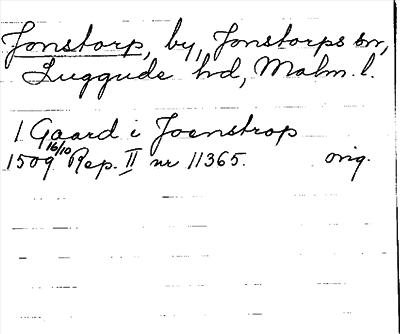 Jonstorp, by, Jonstorps sn,
Luggude hd, Malm. l.
1 Gaard i Joenstrop
1509 16/10 Rep. II nr 11365. orig.